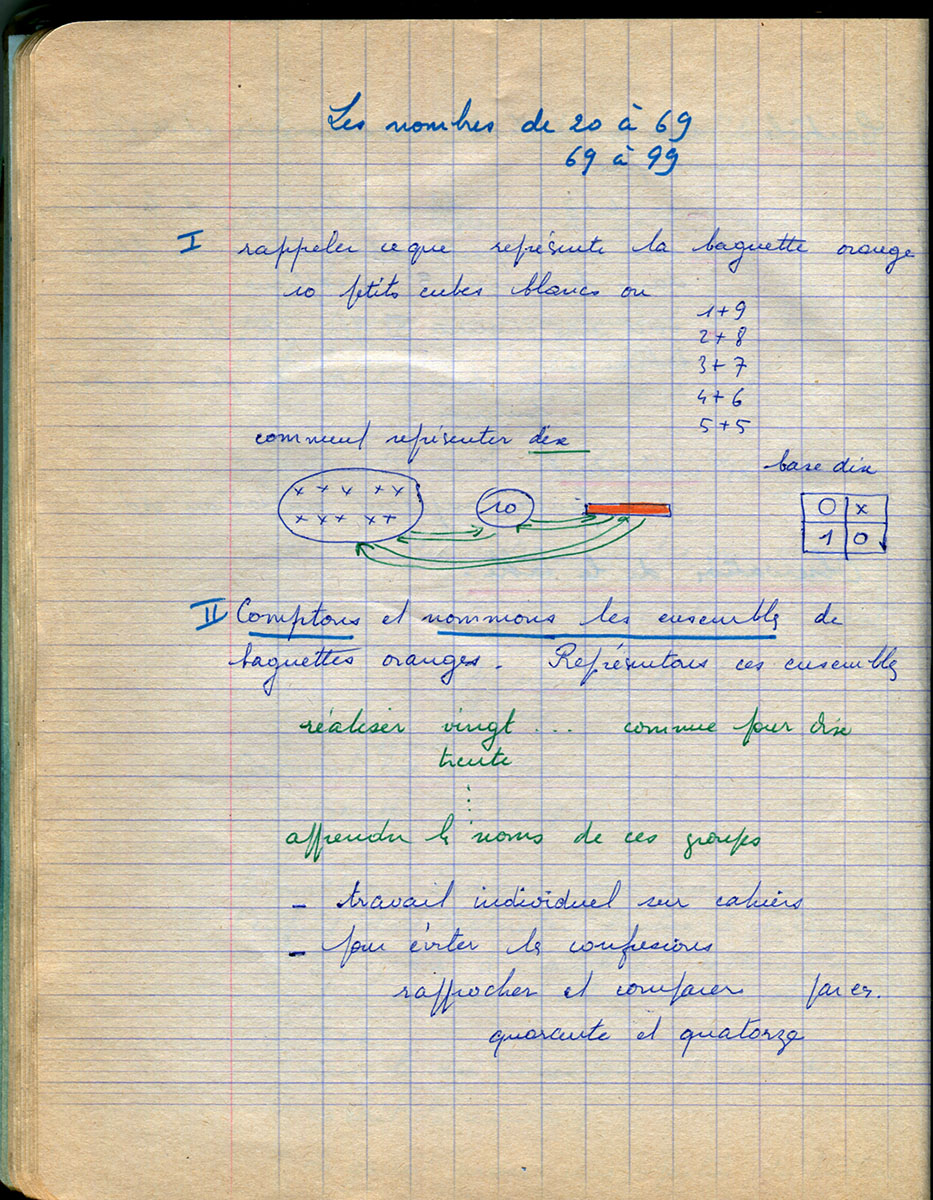 Les nombres de 20 à 69
69 à 99
I rappeler ce que représente la baguette orange
10 petits cubes blancs ou
1+9
2+8
3+7
4+6
5+5
comment représenter dix
base dix
x x x x x
10
0 x
x x x x x
1 0
II Comptons et nommons les ensembles de
baguettes oranges. Représentons ces ensembles
réaliser vingt ... comme pour dix
trente
apprendre les noms de ces groupes
- travail individuel sur cahiers
- pour éviter les confusions
rapprocher et comparer par ex.
quarante et quatorze